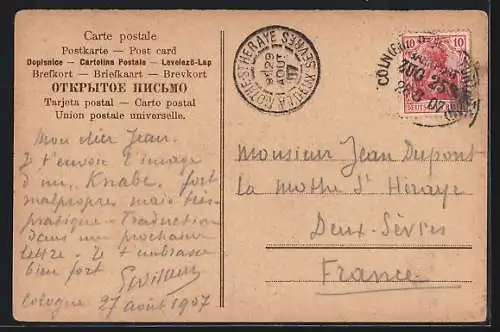 Carte postale
Postkarte — Post card
Dopisnice — Cartolina Postale — Levelező-Lap
Brefkort — Briefkaart — Brevkort
ОТКРЫТОЕ ПИСЬМО
Tarjeta postal — Carto postal
Union postale universelle.
LA MOTHE-ST-HERAYE DEUX-SEVRES
29
AOUT
07
10 10
ZUG
07
Mon cher Jean.
Je t'envoie l'image
d'un Knabe. fort
malpropre mais très
pratique — Traduction
dans une prochaine
lettre. Je t'embrasse
bien fort
Cologne 27 août 1907
Monsieur Jean Dupont
La Mothe St Héraye
Deux-Sèvres
France